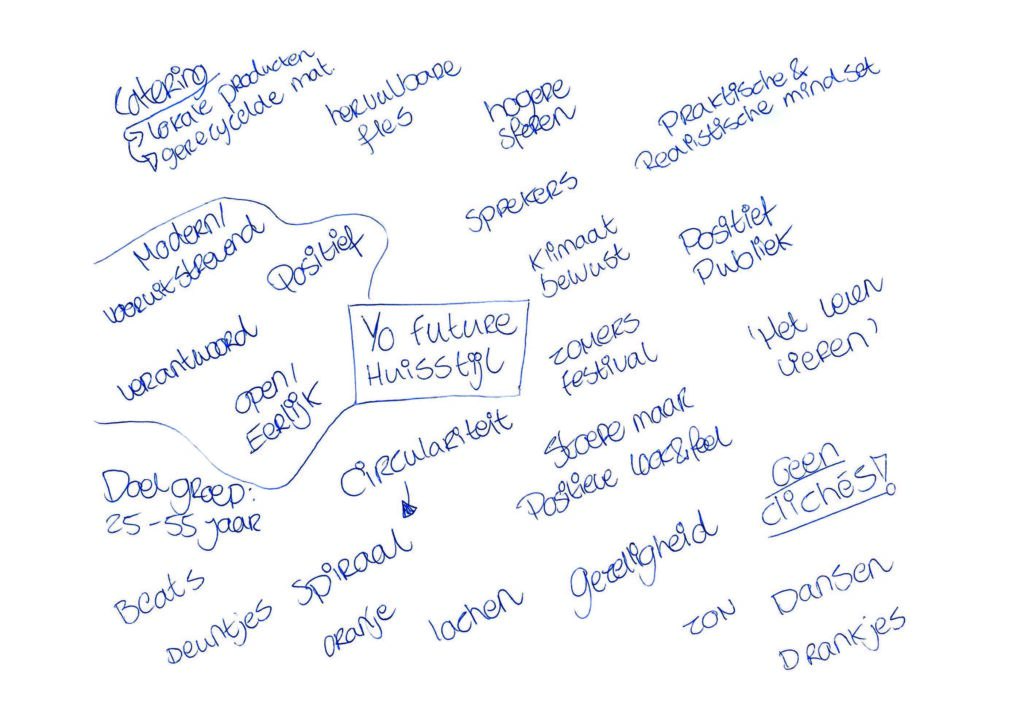 Catering
→ lokale producten
→ gerecyclde mat.
hervulbare
fles
hogere
sferen
Praktische &
Realistische mindset
sprekers
Modern/
vooruitstrevend
Positief
Klimaat
bewust
Positief
Publiek
Yo future
Huisstijl
verantwoord
open/
Eerlijk
zomers
festival
'Het leven
vieren'
Circulariteit
Stoere maar
Positieve look&feel
Geen
clichés!
Doelgroep:
25-55 jaar
Spiraal
Gezelligheid
Beats
Deuntjes
oranje
lachen
zon
Dansen
Drankjes